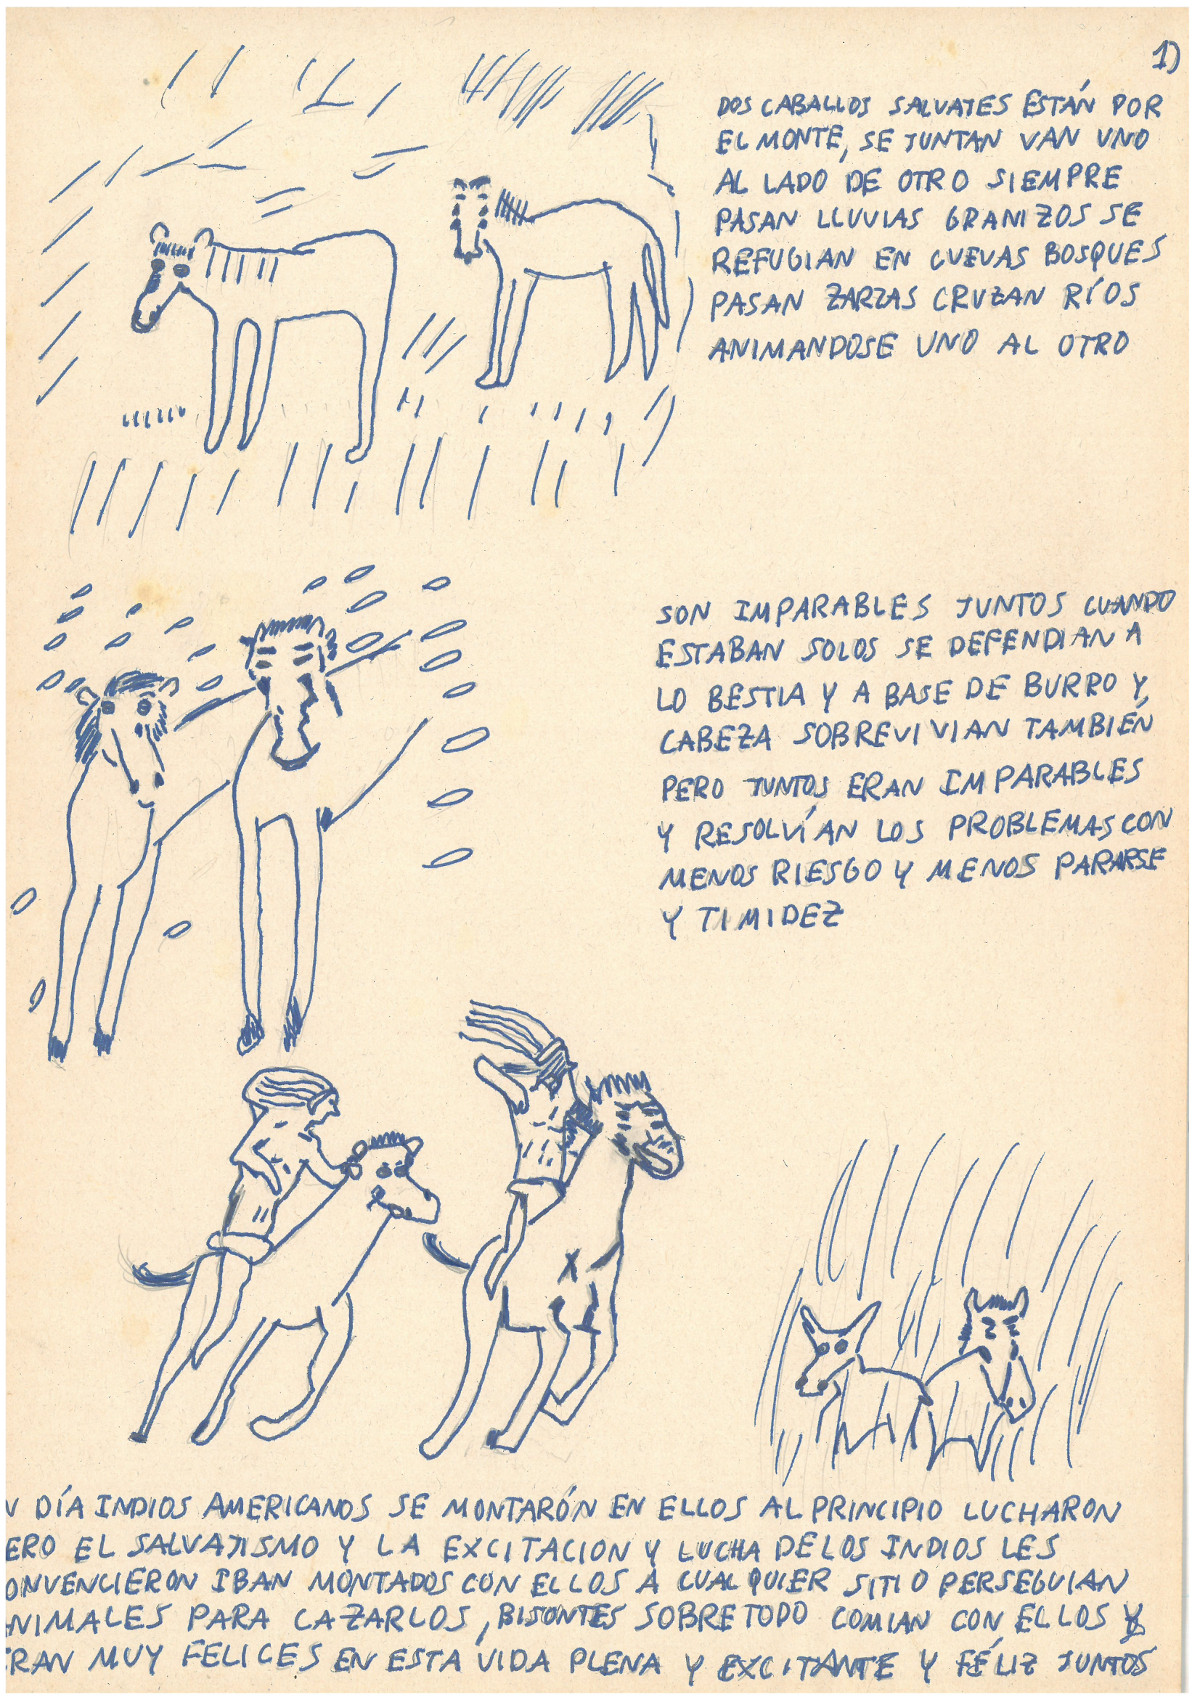 1)
DOS CABALLOS SALVAJES ESTÁN POR
EL MONTE, SE JUNTAN VAN UNO
AL LADO DE OTRO SIEMPRE
PASAN LLUVIAS GRANIZOS SE
REFUGIAN EN CUEVAS BOSQUES
PASAN ZARZAS CRUZAN RÍOS
ANIMANDOSE UNO AL OTRO
SON IMPARABLES JUNTOS CUANDO
ESTABAN SOLOS SE DEFENDIAN A
LO BESTIA Y A BASE DE BURRO Y,
CABEZA SOBREVIVIAN TAMBIÉN
PERO JUNTOS ERAN IMPARABLES
Y RESOLVÍAN LOS PROBLEMAS CON
MENOS RIESGO Y MENOS PARARSE
Y TIMIDEZ
N DÍA INDIOS AMERICANOS SE MONTARÓN EN ELLOS AL PRINCIPIO LUCHARON
ERO EL SALVAJISMO Y LA EXCITACION Y LUCHA DE LOS INDIOS LES
ONVENCIERON IBAN MONTADOS CON ELLOS A CUALQUIER SITIO PERSEGUIAN
NIMALES PARA CAZARLOS, BISONTES SOBRETODO COMIAN CON ELLOS Y
RAN MUY FELICES EN ESTA VIDA PLENA Y EXCITANTE Y FÉLIZ JUNTOS